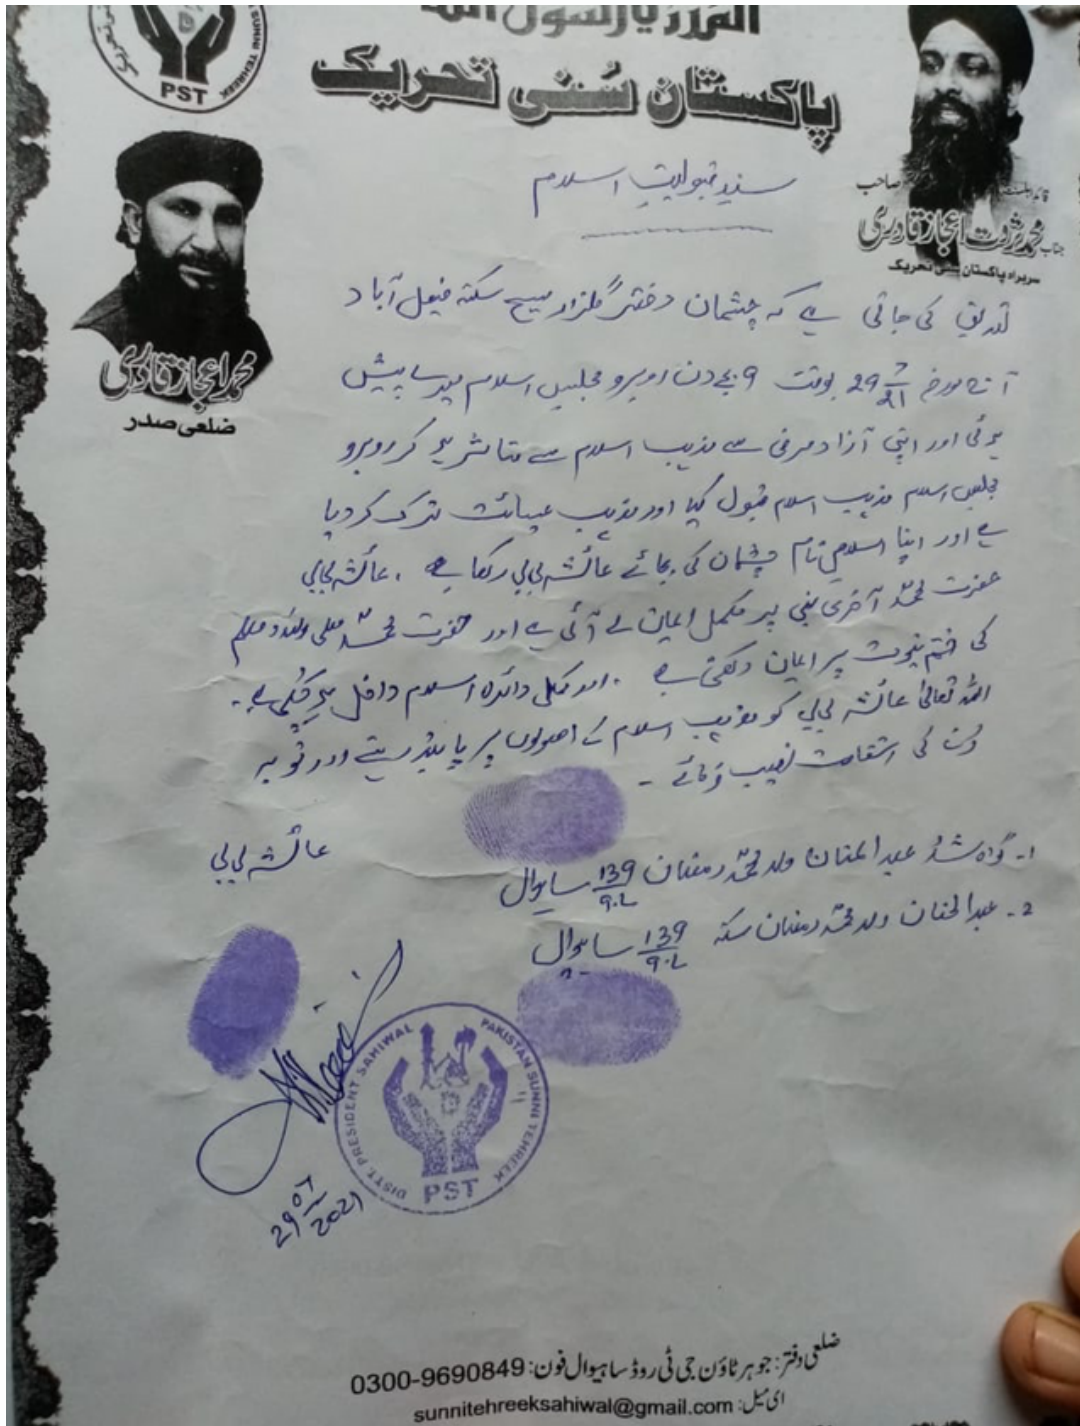 SUNNI TEHREEK
PST
المدد یا رسول اللہ
پاکستان سُنی تحریک
قائد اہلسنت
جناب محمد ثروت اعجاز قادری صاحب
سربراہ پاکستان سنی تحریک
محمد اعجاز قادری
ضلعی صدر
سندِ قبولیتِ اسلام
تصدیق کی جاتی ہے کہ چشمان دختر گلزار مسیح سکنہ فیصل آباد
آج مورخہ 29 7/21 بوقت 9 بجے دن روبرو مجلس اسلام میں پیش
ہوئی اور اپنی آزاد مرضی سے مذہب اسلام سے متاثر ہو کر روبرو
مجلس اسلام مذہب اسلام قبول کیا اور مذہب عیسائت ترک کر دیا
ہے اور اپنا اسلامی نام چشمان کی بجائے عائشہ بی بی رکھا ہے ۔ عائشہ بی بی
حضرت محمدؐ آخری نبی پر مکمل ایمان لے آئی ہے اور حضرت محمدؐ صلی وسلم
کی ختم نبوت پر ایمان رکھتی ہے ۔ اور مکمل دائرہ اسلام داخل ہو چکی ہے ۔
اللہ تعالیٰ عائشہ بی بی کو مذہب اسلام کے اصولوں پر پابند رہنے اور توبہ
کی استقامت نصیب فرمائے ۔
عائشہ بی بی
1۔ گواہ شد عبدالمنان ولد محمدؐ رمضان 139/9.L ساہیوال
2۔ عبدالحنان ولد محمدؐ رمضان سکنہ 139/9.L ساہیوال
DISTT. PRESIDENT SAHIWAL PAKISTAN SUNNI TEHREEK
PST
29 07/2021
ضلعی دفتر: جوہر ٹاؤن جی ٹی روڈ ساہیوال فون: 0300-9690849
ای میل: sunnitehreeksahiwal@gmail.com